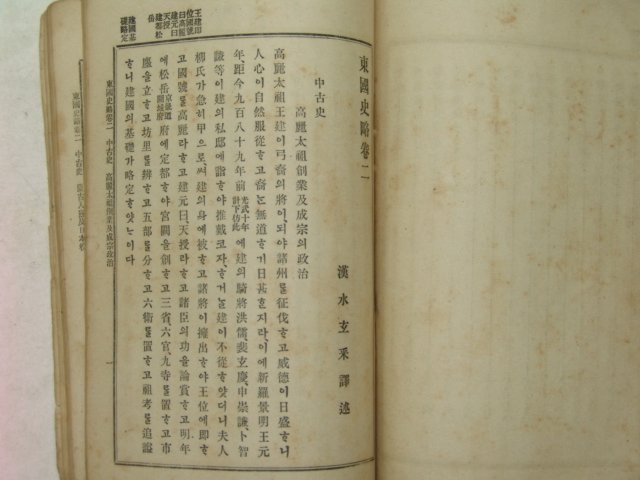 東國史略卷二
漢水玄采譯述
中古史
高麗太祖創業及成宗의政治
高麗太祖王建이弓裔의將이되야諸州를征伐ᄒᆞ고威德이日盛ᄒᆞ니
人心이自然服從ᄒᆞ고裔ᄂᆞᆫ無道ᄒᆞ기日甚ᄒᆞᆫ지라이에新羅景明王元
年、距今九百八十九年前光武十年計下倣此에建의騎將洪儒、裴玄慶、申崇謙、卜智
謙等이建의私邸에詣ᄒᆞ야推戴코자ᄒᆞ거ᄂᆞᆯ建이不從ᄒᆞ얏더니夫人
柳氏가急히甲으로ᄡᅥ建의身에被ᄒᆞ고諸將이擁出ᄒᆞ야王位에即ᄒᆞ
고國號를高麗라ᄒᆞ고建元曰、天授라ᄒᆞ고諸臣의功을論賞ᄒᆞ고明年
에松岳京畿道開城府府에定都ᄒᆞ야宮闕을創ᄒᆞ고三省、六官、九寺를置ᄒᆞ고市
廛을立ᄒᆞ고坊里를辨ᄒᆞ고五部를分ᄒᆞ고六衛를置ᄒᆞ고祖考를追謚
ᄒᆞ니建國의基礎가略定ᄒᆞ얏ᄂᆞ이다
王建即
位國號
曰高麗
建元曰
天授
建都松
岳
建國基
礎略定
東國史略卷二 中古史 高麗太祖創業及成宗政治
一
東國史略卷二 中古史